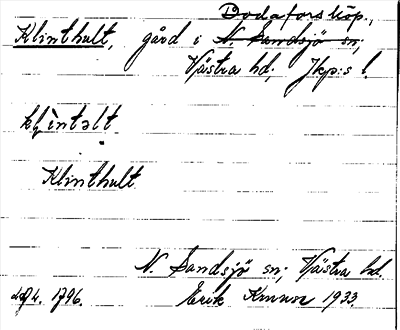 Bodafors köp.,
Klinthult, gård i N. Sandsjö sn;
Västra hd; Jkp:s l.
klìntəlt
Klinthult
N. Sandsjö sn; Västra hd.
1796. Erik 1933.